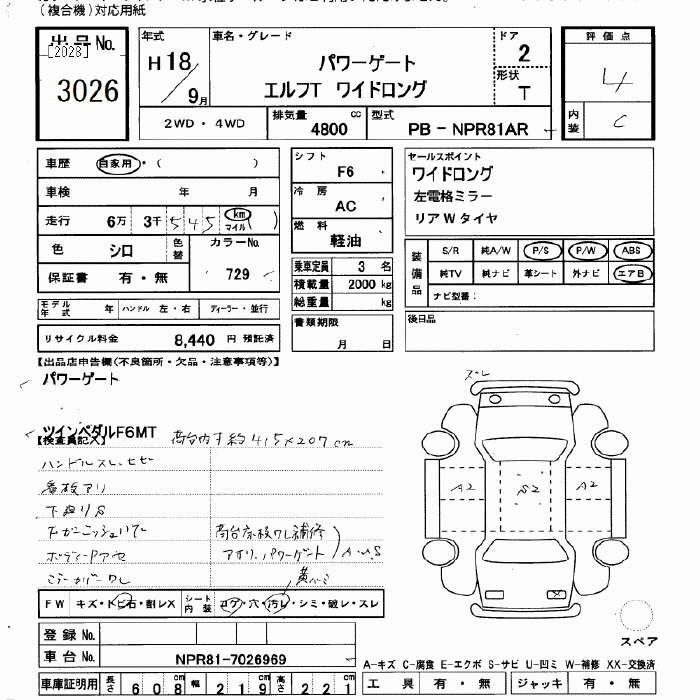 （複合機）対応用紙
出品No.
[2028]
3026
年式
H18
9月
車名・グレード
パワーゲート
エルフT ワイドロング
ドア
2
形状
T
評価点
4
内装
C
2WD・4WD
排気量
4800 cc
型式
PB - NPR81AR
車歴 自家用・( )
車検 年 月
走行 6万 3千 545 km マイル ( )
色 シロ
色替
カラーNo.
729
保証書 有・無
モデル年式 年 ハンドル 左・右 ディーラー・並行
リサイクル料金 8,440 円 預託済
シフト
F6
冷房
AC
燃料
軽油
乗車定員 3 名
積載量 2000 kg
総重量 kg
書類期限
月 日
セールスポイント
ワイドロング
左電格ミラー
リアWタイヤ
装備品
S/R 純A/W P/S P/W ABS
純TV 純ナビ 革シート 外ナビ エアB
ナビ型番：
後日品
【出品店申告欄(不良箇所・欠品・注意事項等)】
パワーゲート
ツインペダルF6MT
【検査員記入】
荷台内寸約415×207cm
ハンドルスレ、
看板アリ
下廻りS
荷台床板ワレ補修
アオリ、パワーゲート
A2
S2
A2
FW キズ・トビ石・割レX
シート内装 コゲ・穴・汚レ・シミ・破レ・スレ
登録No.
車台No. NPR81-7026969
車庫証明用 長さ 608 幅 219 高さ 221
スペア
A-キズ C-腐食 E-エクボ S-サビ U-凹ミ W-補修 XX-交換済
工具 有・無 ジャッキ 有・無